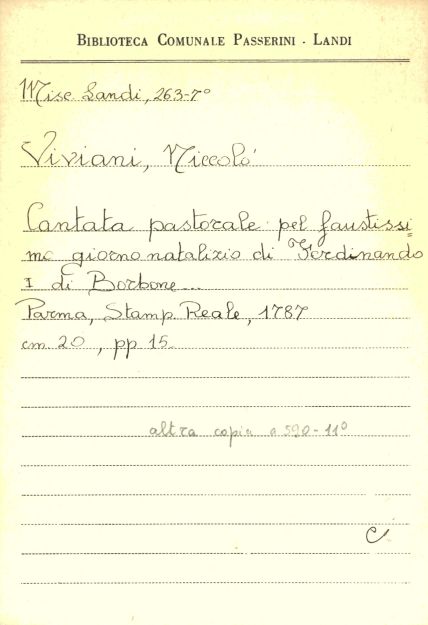 BIBLIOTECA COMUNALE PASSERINI - LANDI
Misc Landi, 263-7°
Viviani, Niccolò
Cantata pastorale pel faustissi=
mo giorno natalizio di Ferdinando
I di Borbone...
Parma, Stamp. Reale, 1787
cm 20, pp 15
altra copia a 590-11°
C